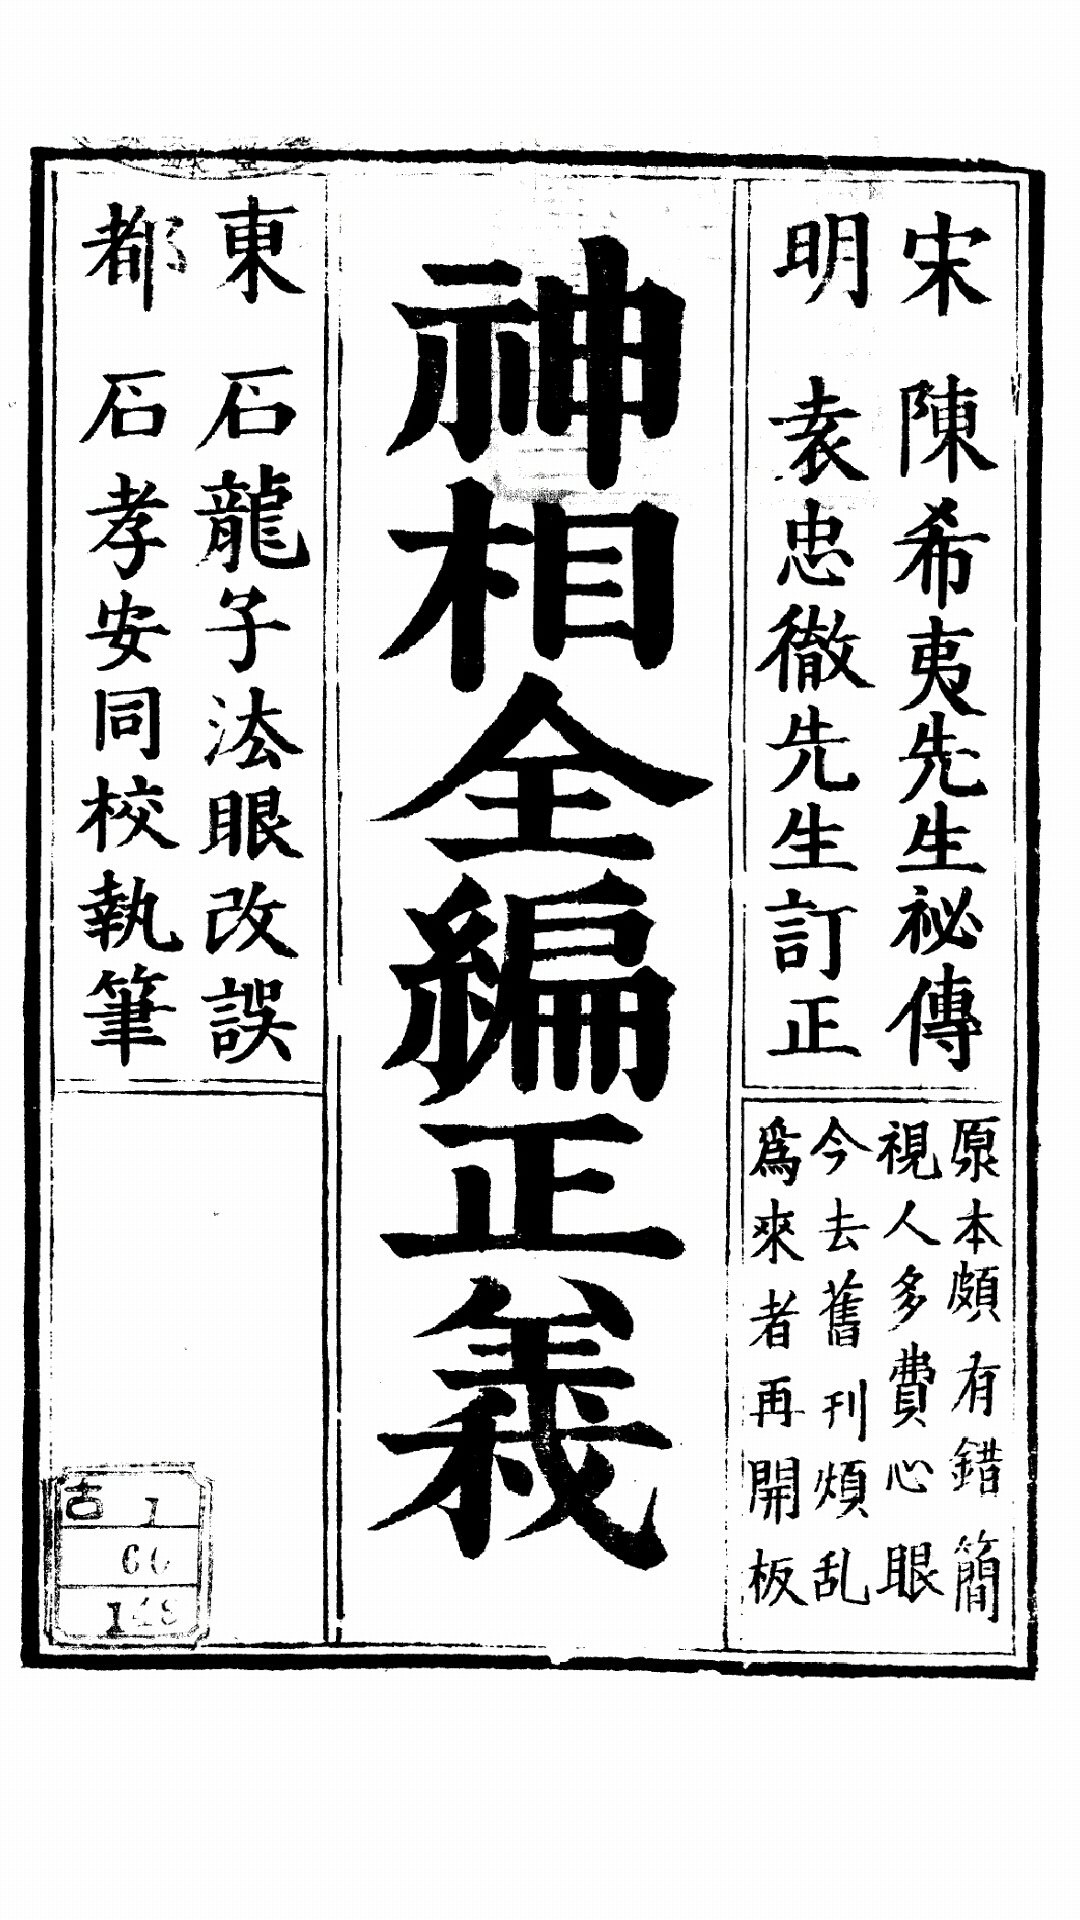 宋 陳希夷先生祕傳
明 袁忠徹先生訂正
原本頗有錯簡
視人多費心眼
今去舊刊煩乱
爲來者再開板
神相全編正義
東 石龍子法眼改誤
都 石孝安同校執筆
古 1